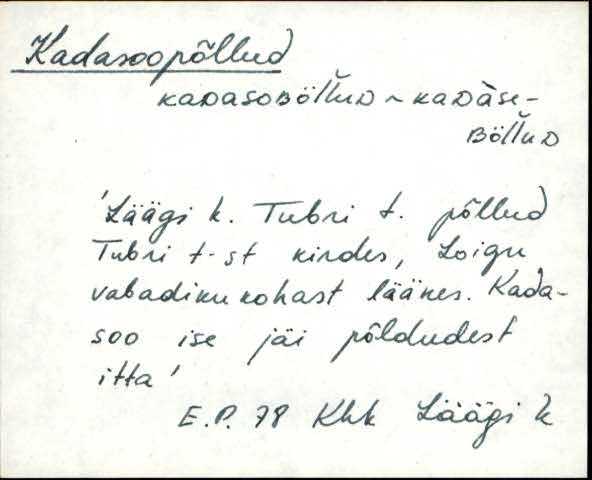 Kadasoopõllud
KADASOBÖL̆LUD ~ KADÀSE-
BÖL̆LUD
'Läägi k. Tubri t. põllud
Tubri t-st kirdes, Loigu
vabadikukohast läänes. Kada-
soo ise jäi põldudest
itta'
E.P. 78 Khk Läägi k